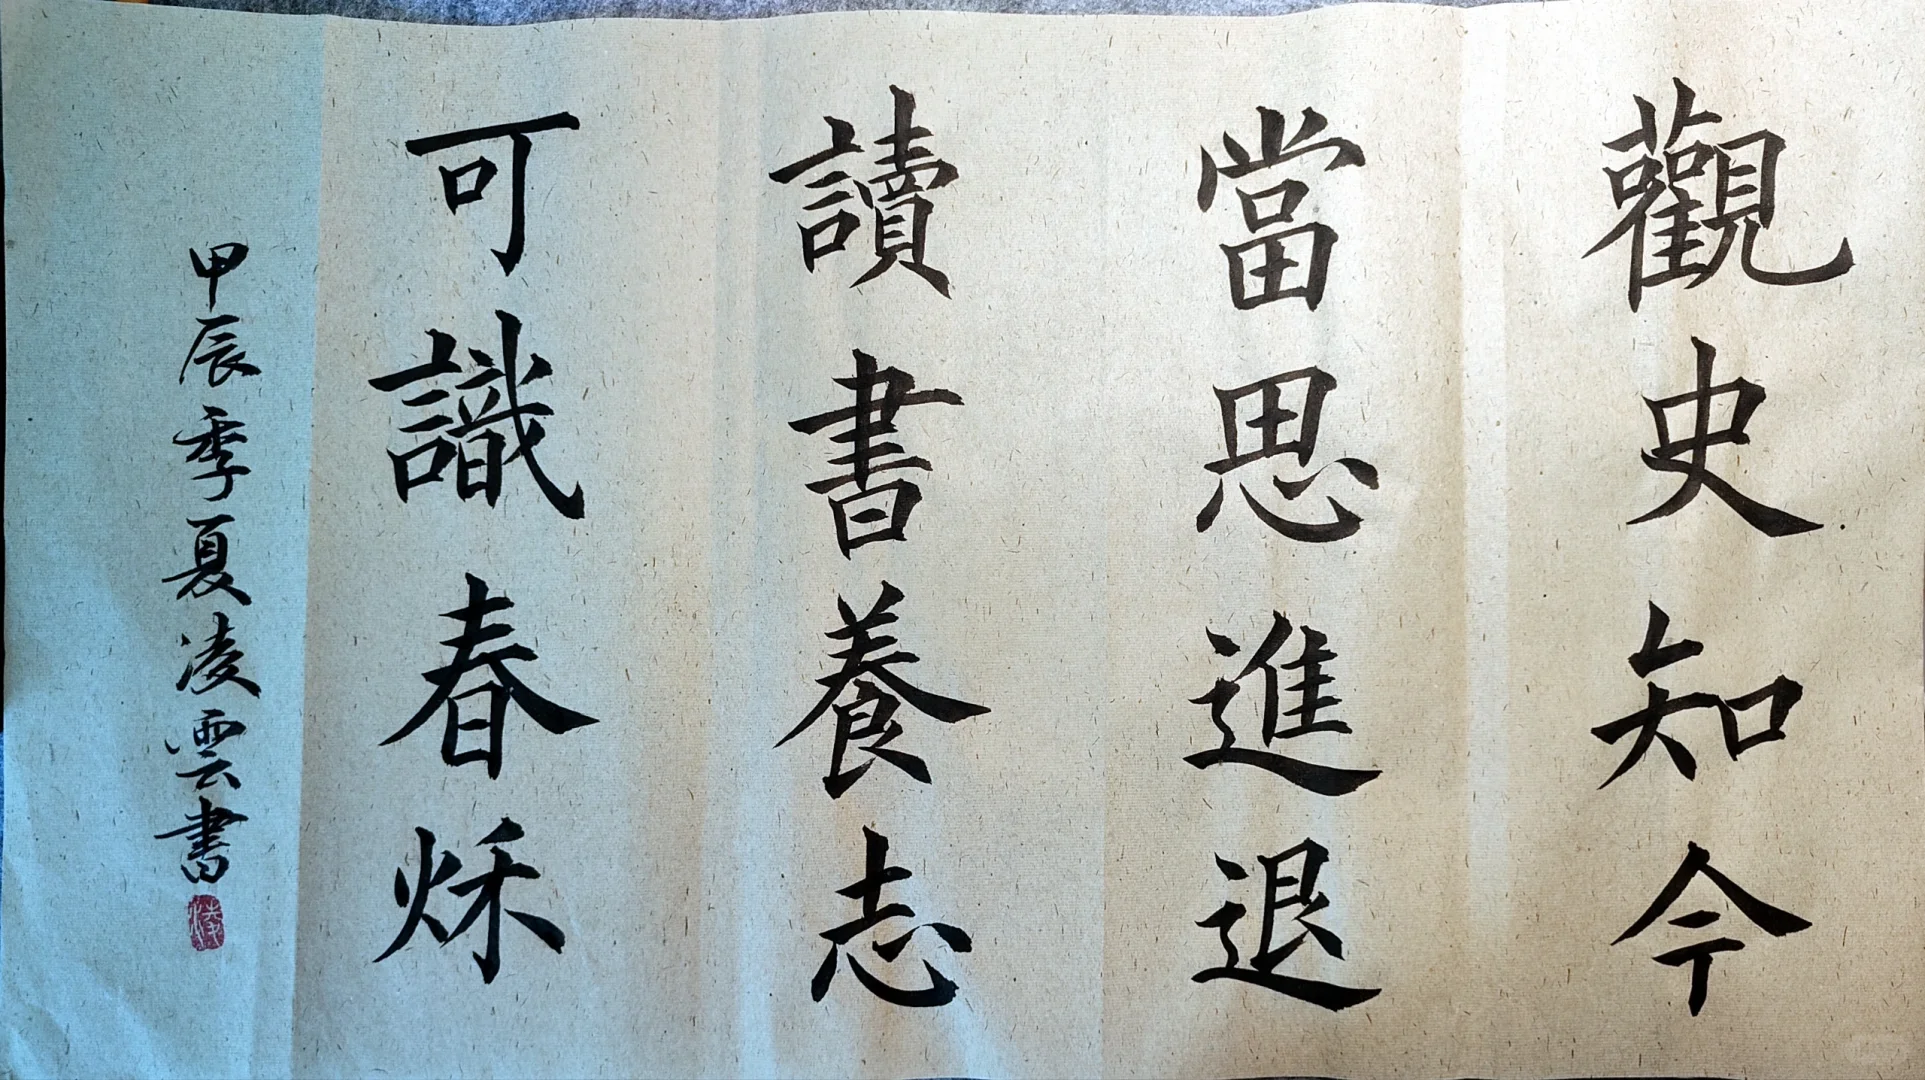 觀史知今
當思進退
讀書養志
可識春秌
甲辰季夏凌雲書